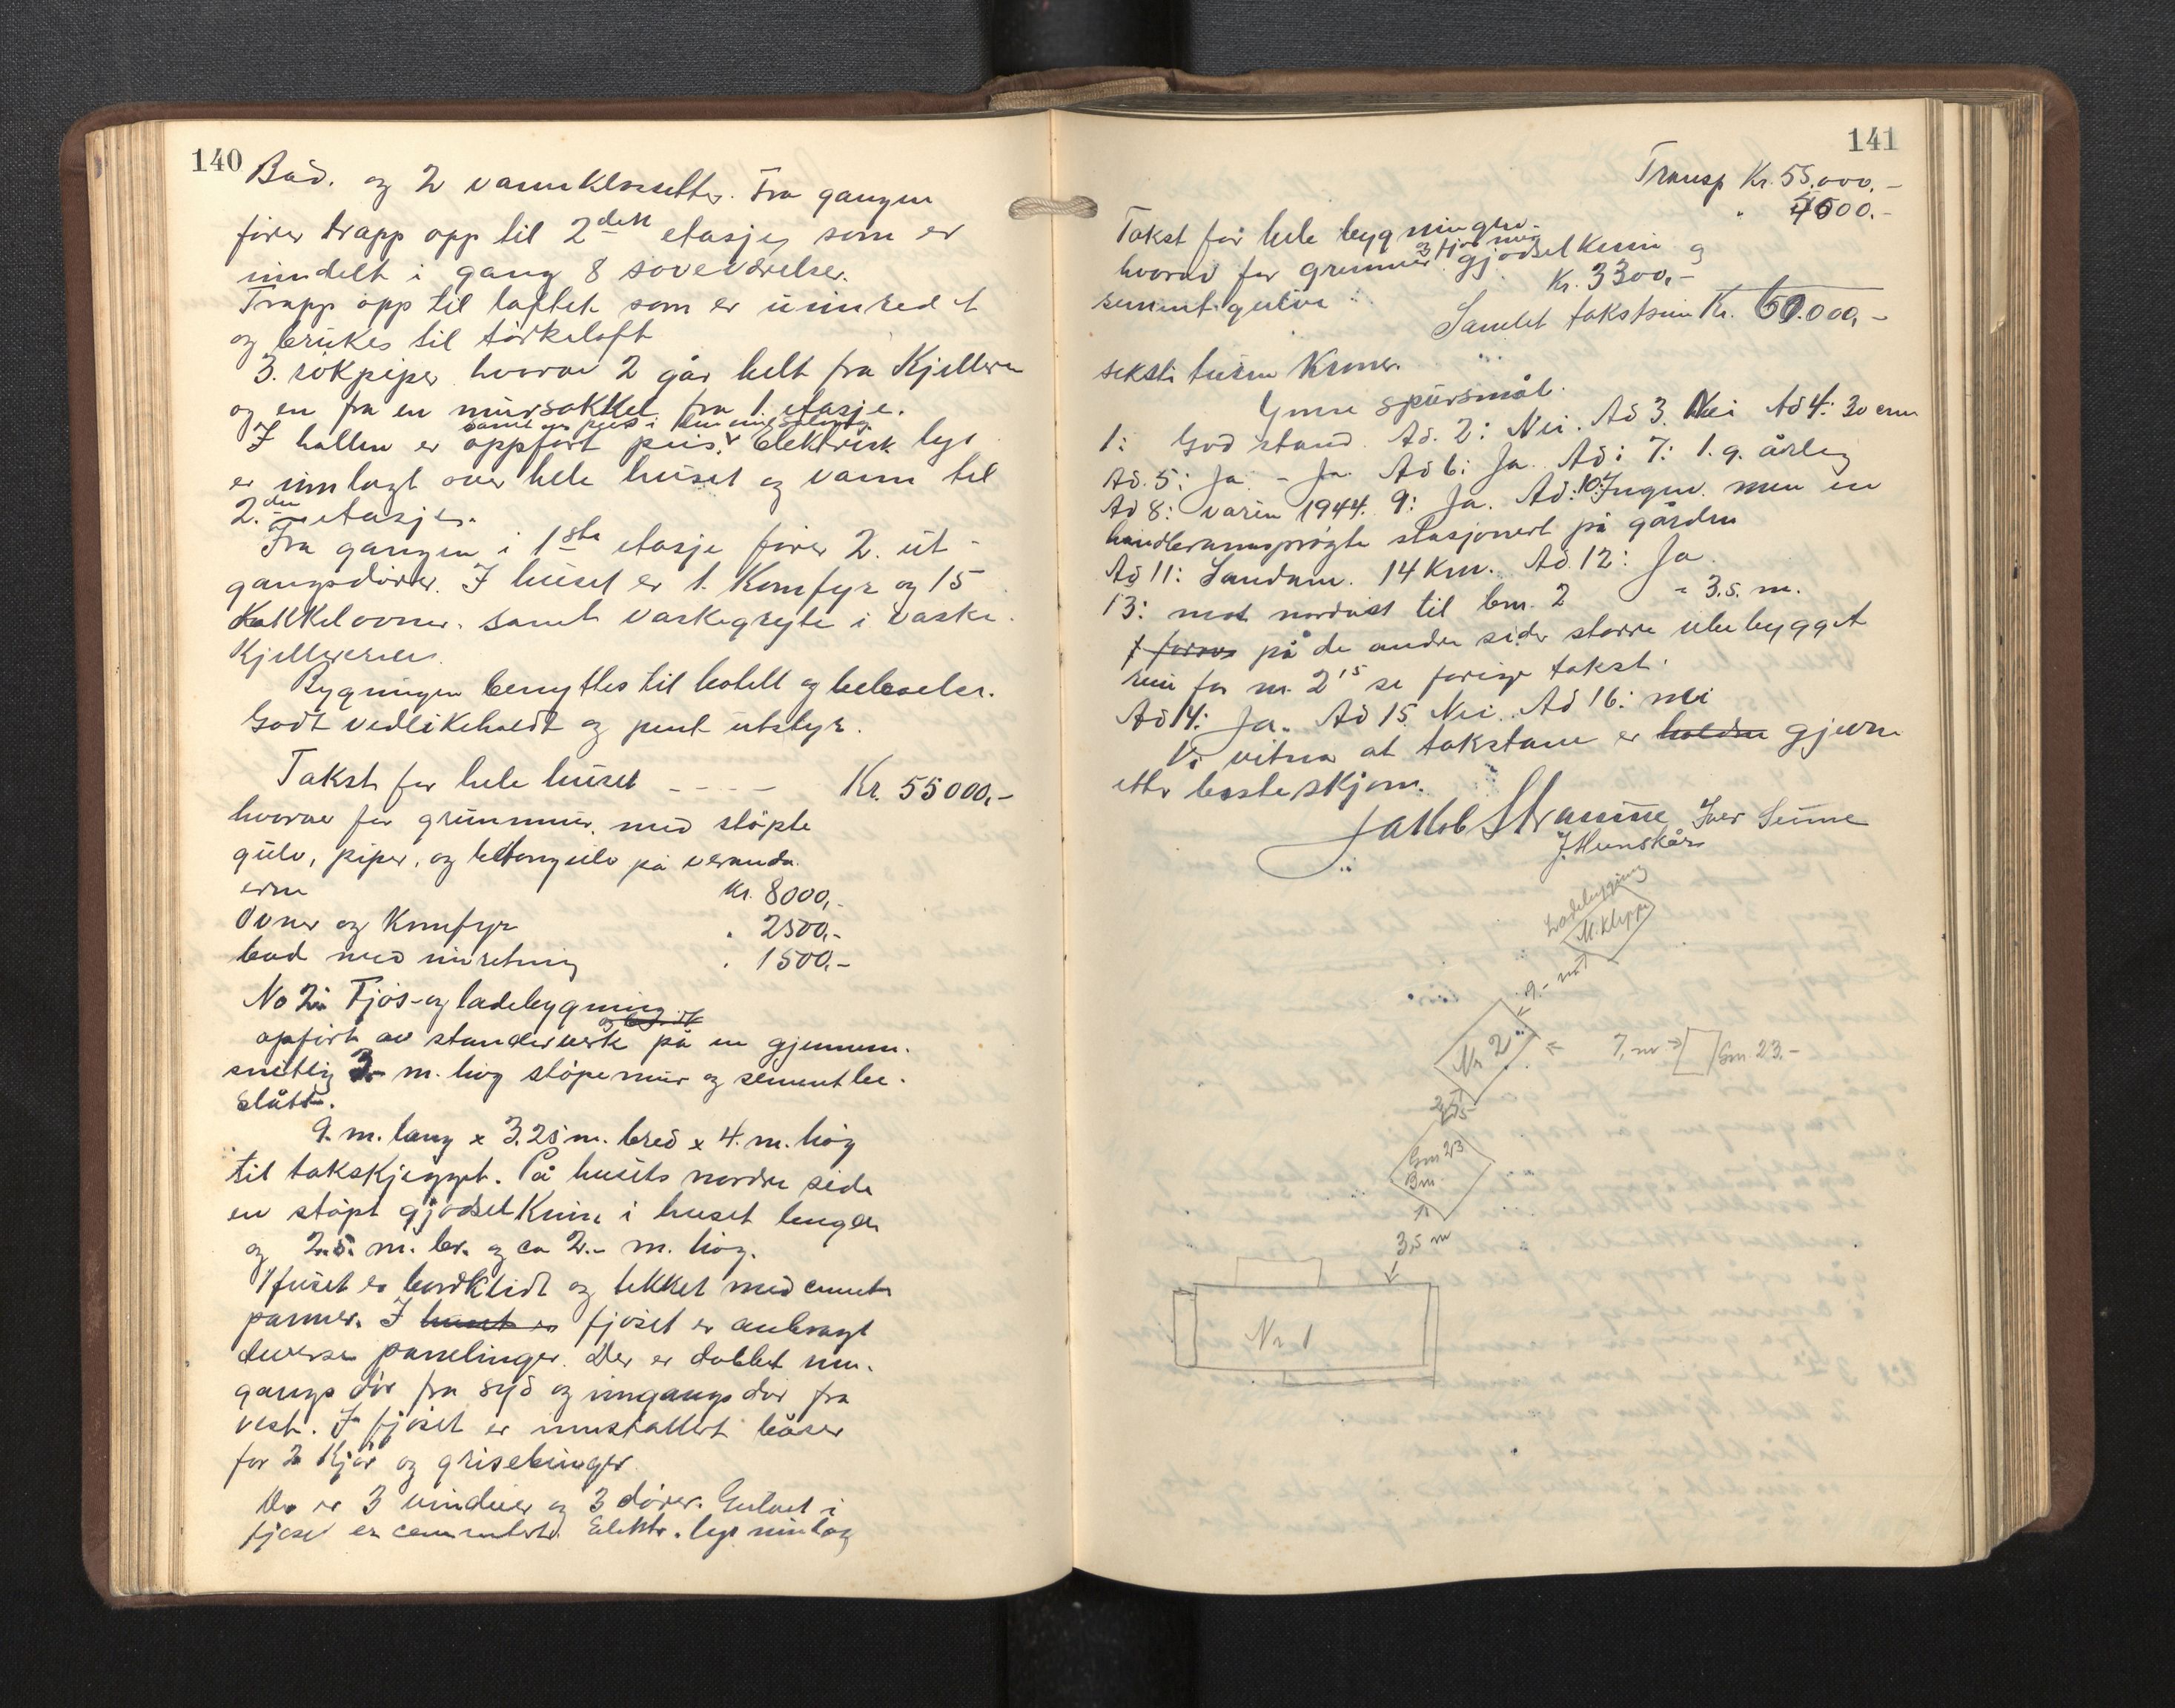 140
Bad. og 2 vannklosetter. Fra gangen
fører trapp opp til 2den etasje, som er
inndelt i gang 8 soveværelser.
Trapp opp til loftet som er uinnredet
og brukes til törkeloft
3. rökpiper hvorav 2 går helt fra Kjelleren
og en fra en mursokkel fra 1. etasje.
samt en peis i
I hallen er oppført peis. Elektrisk lys
er innlagt over hele huset og vann til
2.den etasje.
Fra gangen i 1ste etasje fører 2. ut-
gangsdører. I huset er 1. Komfyr og 15
Kakkelovner. samt vaskegryte i vaske-
Kjelleren.
Bygningen benyttes til hotell og beboelse.
Godt vedlikeholdt og pent utstyr.
Takst for hele huset ---- Kr. 55000,-
hvorav for grunnmur, med støpte
gulv, piper, og betongulv på veranda
erne Kr. 8000,-
Ovner og Komfyr " 2500,-
bad med innretning " 1500,-
No 2: Fjös- og ladebygning
opført av standerverk på en gjennem-
snitlig 3- m. høg støpemur og sementbe-
slått.
9. m. lang x 3.25 m. bred x 4. m. høg
til takskjegget. På husets nordre side
en støpt gjødselkum i huset lengde
og 2.5. m. br. og ca 2.- m. høg.
Huset er bordklædt og tekket med cement
panner. I huset er fjøset er anbragt
diverse panelinger. Der er dobbet inn-
gangs dør fra syd og inngangs dør fra
vest. I fjøset er innstallert båser
for 2 Kjør og grisebinger
Der er 3 vinduer og 3 dører. Gulvet i
fjøset er cementert. Elektr. lys innlag
141
Transp Kr. 55.000.-
Takst for hele bygningen " 4500.-
hvorav for grunnmur gjødselkum og
sementgulv Kr. 3300,-
Samlet takstsum Kr. 60.000,-
seksti tusen Kroner.
Ymse spursmål.
1: God stand. Ad. 2: Nei. Ad 3. Nei Ad 4: 30 cm
Ad. 5: Ja. - Ja. Ad 6: Ja. Ad: 7: 1. g. årleg
Ad 8: våren 1944. 9: Ja. Ad: 10: Ingen. men en
håndbrannsprøyte stasjonert på gården
Ad 11: Sandane. 14 Km. Ad. 12: Ja.
13: mot nordvest til bm. 2 = 3.5. m.
på de andre sider større ubebygget
rum for nr. 2 se forige takst.
Ad 14: Ja. Ad 15. Nei. Ad 16: nei
Vi vitna at takstane er holden gjevne
etter beste skjøn.
Jakob Straume Iver Seime
J. Hunskår
Ladebygning
M. Kleppe
9.- m
Nr 2
7, m Gm. 23.-
2,75
Gm 23
Bm.
3,5 m
Nr 1